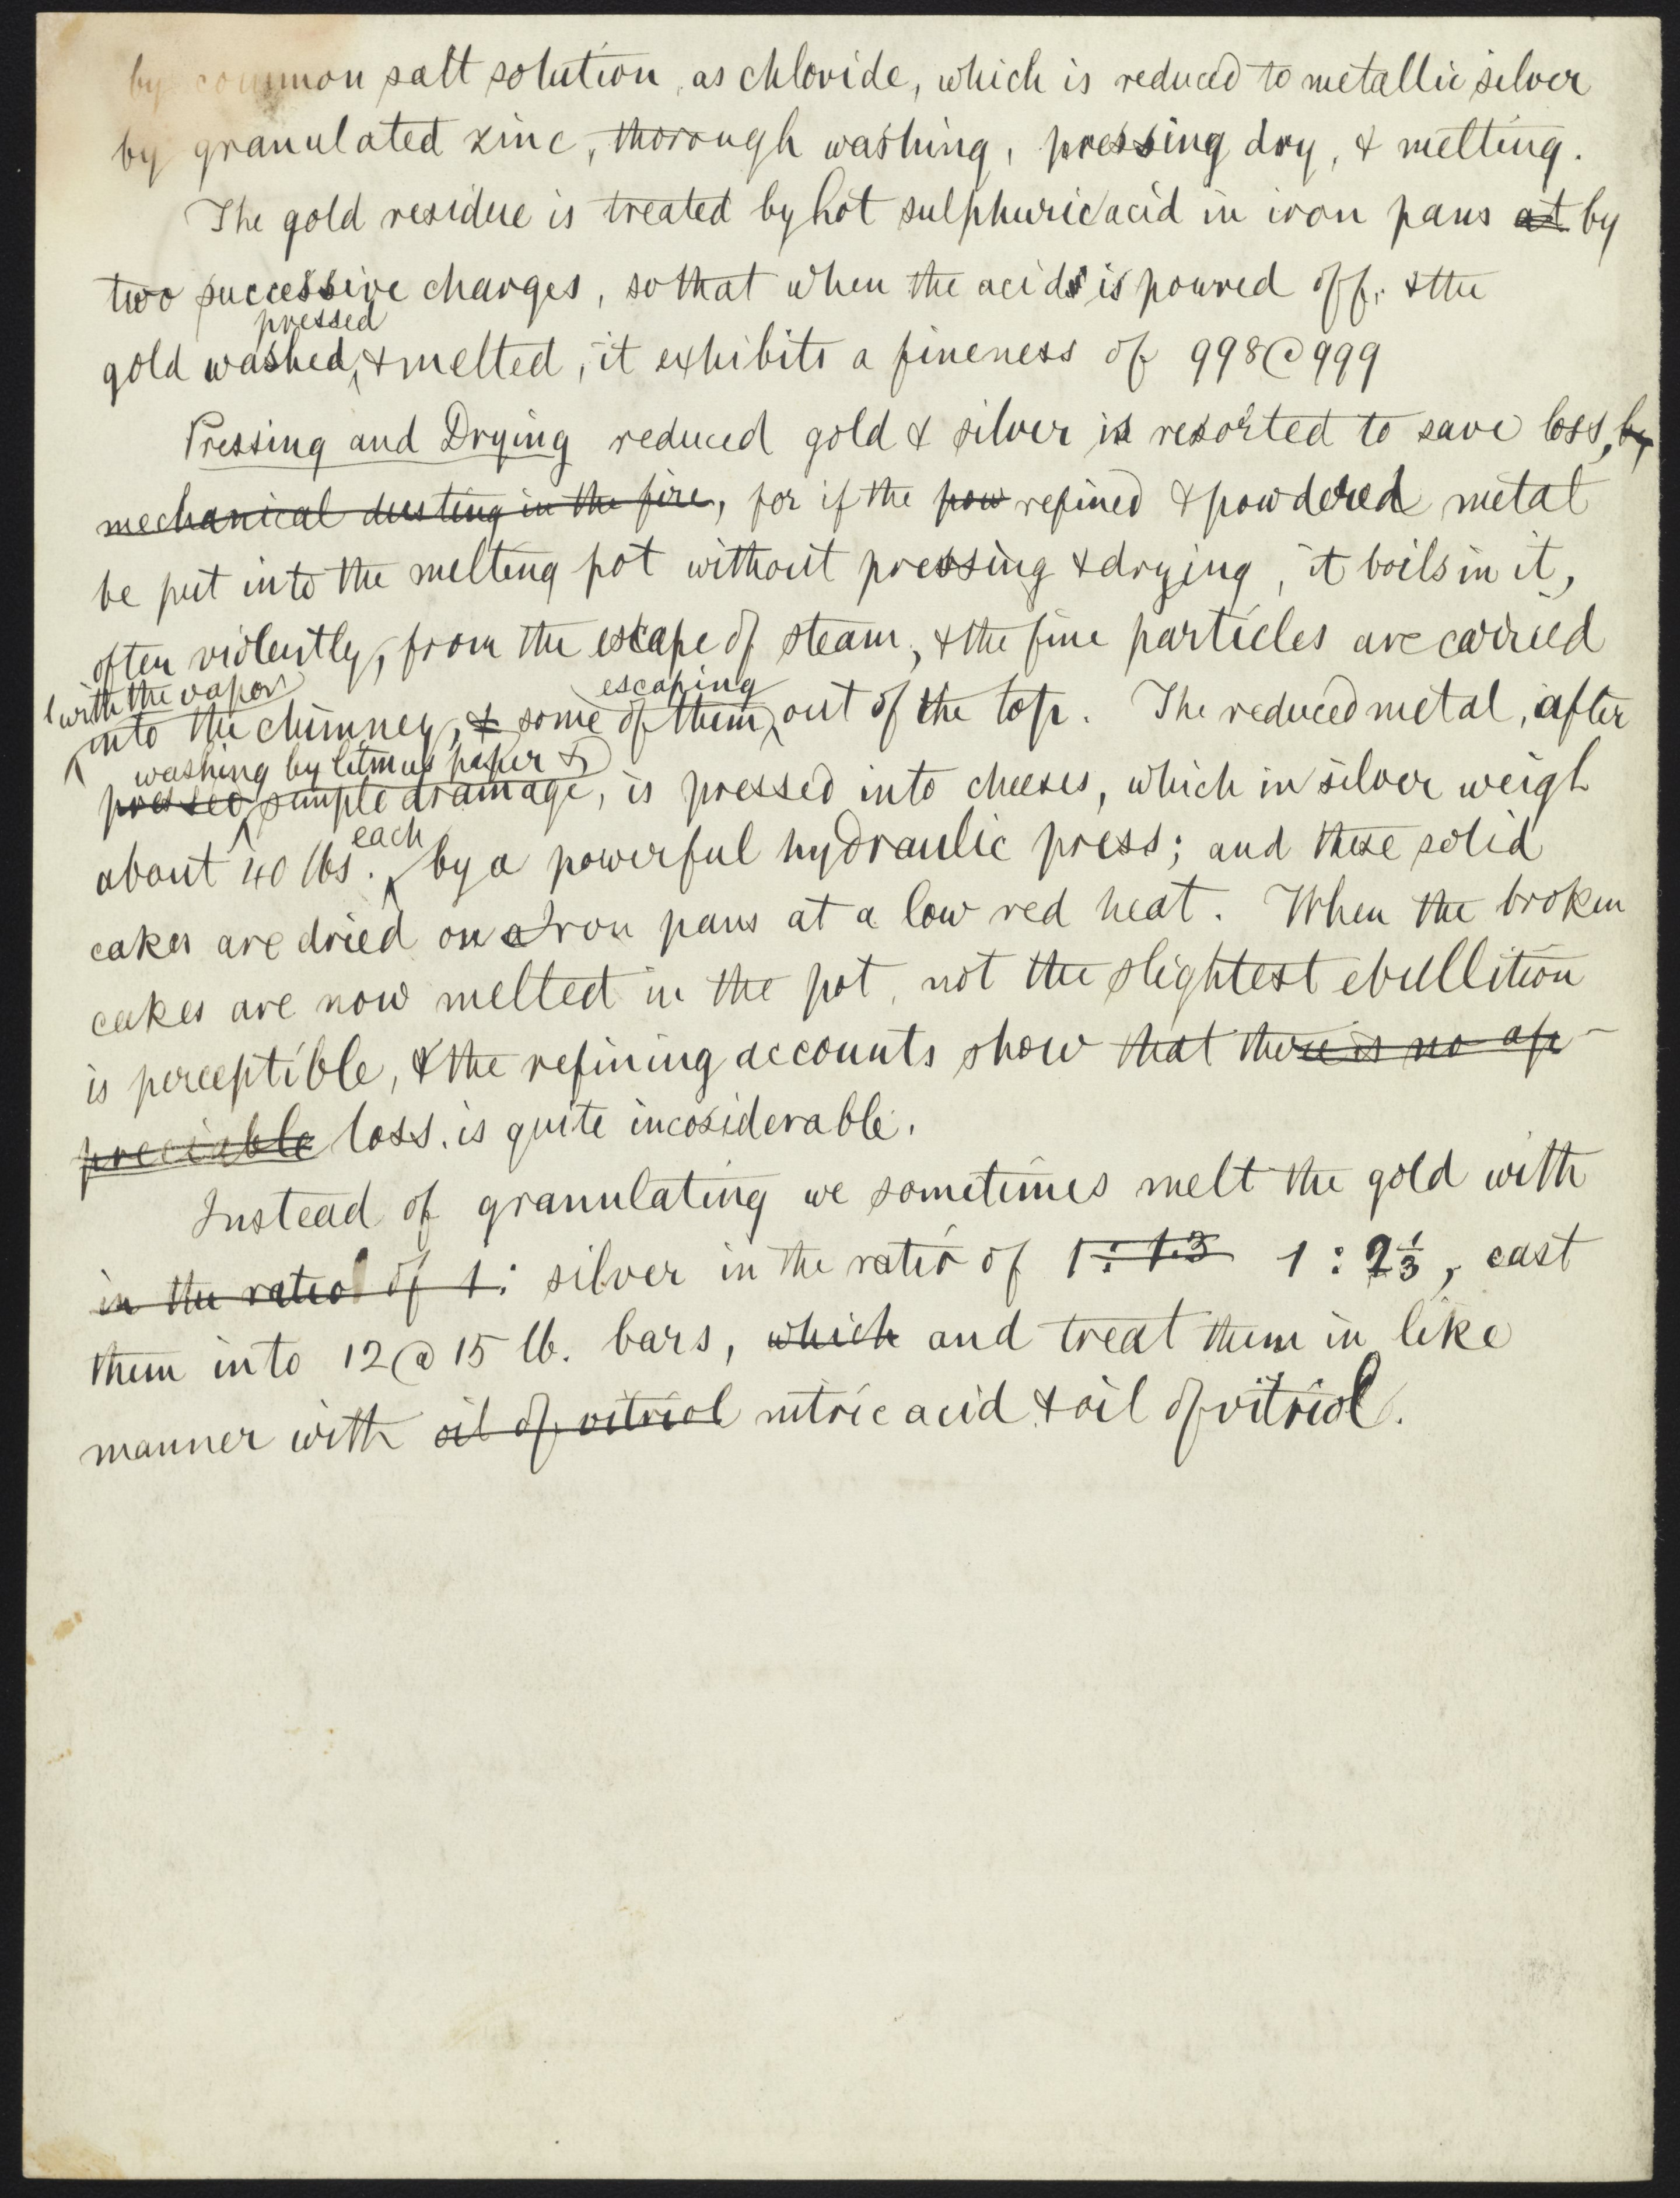 by common salt solution, as chloride, which is reduced to metallic silver
by granulated zinc, thorough washing, pressing dry, & melting.
The gold residue is treated by hot sulphuric acid in iron pans at by
two successive charges, so that when the acids is poured off, & the
pressed
gold washed, & melted, it exhibits a fineness of 998@999
Pressing and Drying reduced gold & silver is resorted to save loss, by
mechanical dusting in the fire, for if the pow refined & powdered metal
be put into the melting pot without pressing & drying, it boils in it,
often violently, from the escape of steam, & the fine particles are carried
with the vapor escaping
into the chimney, & some of them out of the top. The reduced metal, after
washing by litmus paper &
pressed simple drainage, is pressed into cheeses, which in silver weigh
each
about 40 lbs. by a powerful hydraulic press; and these solid
cakes are dried on a Iron pans at a low red heat. When the broken
cakes are now melted in the pot, not the slightest ebullition
is perceptible, & the refining accounts show that there is no ap-
preciable loss. is quite incosiderable.
Instead of granulating we sometimes melt the gold with
in the ratio of 1: silver in the ratio of 1:13 1:2⅓, cast
them into 12@15 lb. bars, which and treat them in like
manner with oil of vitriol nitric acid & oil of vitriol.